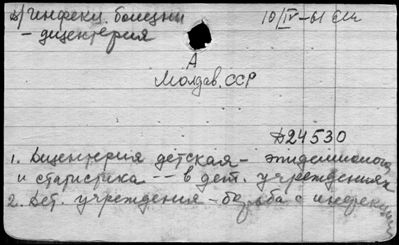 Д) Инфекц. болезни 10/IV-61
- дизентерия
А
Молдав. ССР
Д24530
1. Дизентерия детская - эпидемиология
и статистика -- в дет. учреждениях
2. Дет. учреждения - борьба с инфекциями